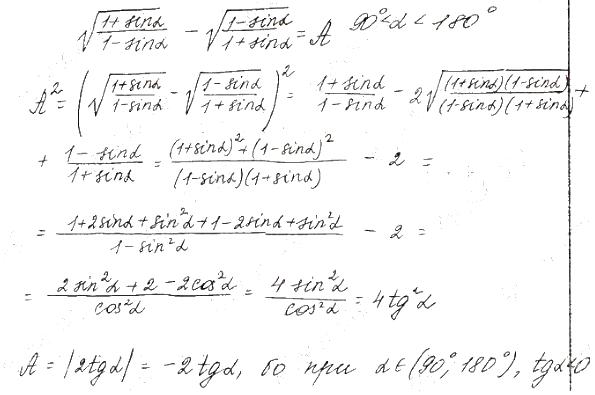 √((1+sinα)/(1-sinα)) - √((1-sinα)/(1+sinα)) = A   90°<α<180°
A² = (√((1+sinα)/(1-sinα)) - √((1-sinα)/(1+sinα)))² = (1+sinα)/(1-sinα) - 2√(((1+sinα)(1-sinα))/((1-sinα)(1+sinα))) +
+ (1-sinα)/(1+sinα) = ((1+sinα)²+(1-sinα)²)/((1-sinα)(1+sinα)) - 2 =
= (1+2sinα+sin²α+1-2sinα+sin²α)/(1-sin²α) - 2 =
= (2sin²α+2-2cos²α)/(cos²α) = (4sin²α)/(cos²α) = 4tg²α
A = |2tgα| = -2tgα, бо при α∈(90°, 180°), tgα<0